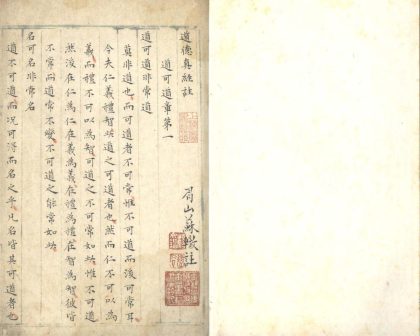 道德真經註
眉山蘇轍註
道可道章第一
道可道非常道
莫非道也而可道者不可常惟不可道而後可常耳
今夫仁義禮智此道之可道者也然而仁不可以為
義而禮不可以為智可道之不可常如此惟不可道
然後在仁為仁在義為義在禮為禮在智為智彼皆
不常而道常不變不可道之能常如此
名可名非常名
道不可道而况可得而名之乎凡名皆其可道者也